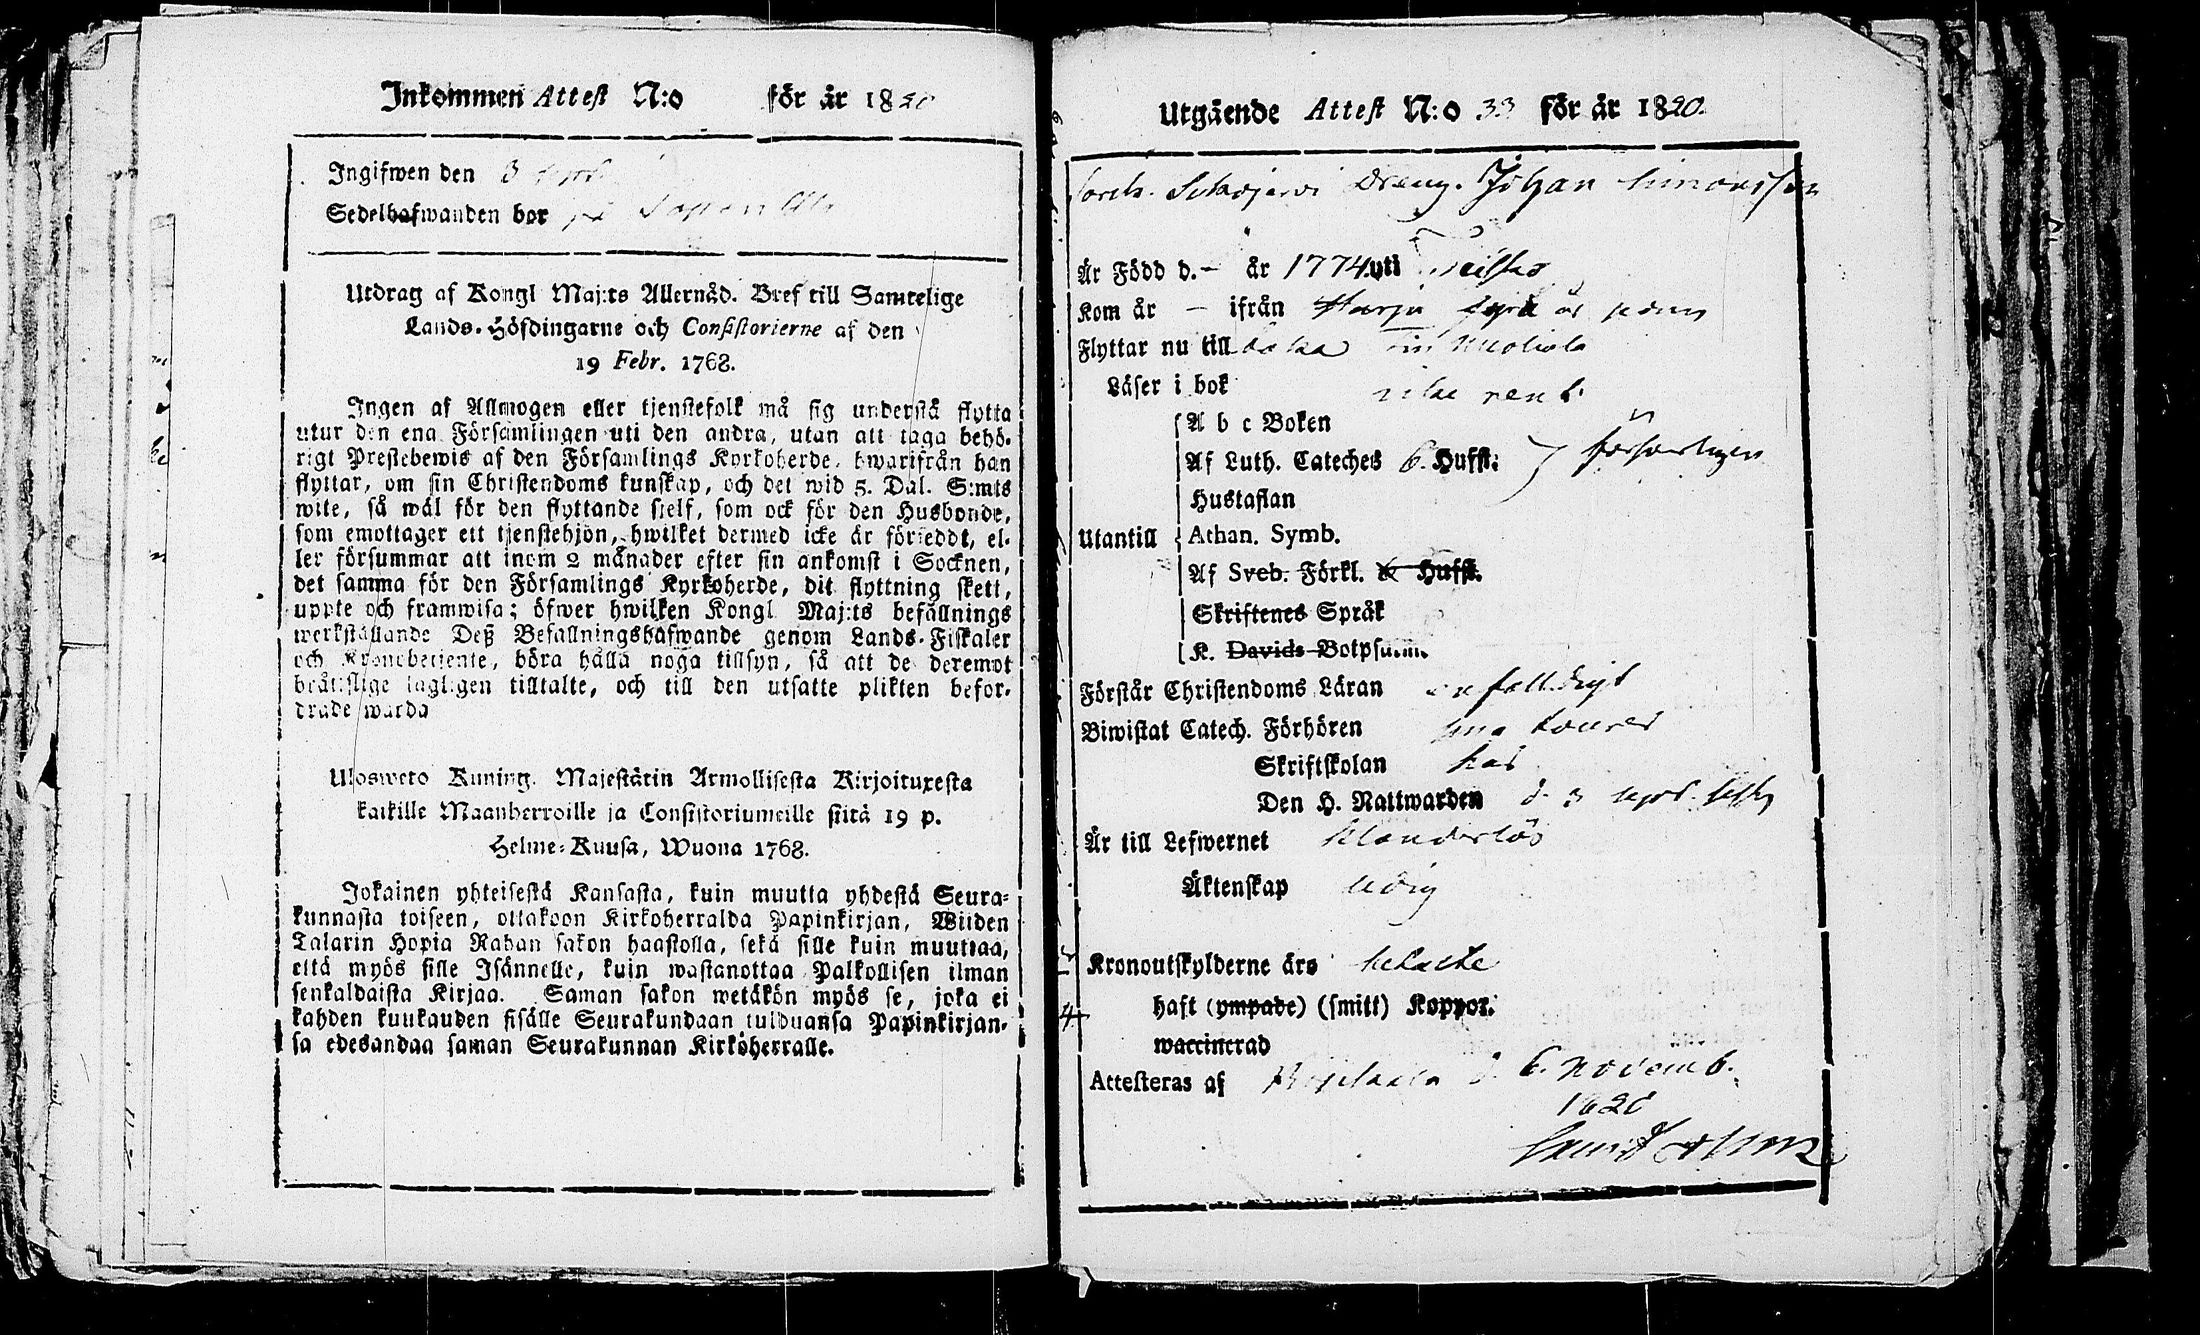 Inkommen Attest N:o för år 1820
Ingifwen den 3
Sedelhafwanden bor på
Utdrag af Kongl Maj:ts Allernåd. Bref till Samtelige
Lands-Höfdingarne och Consistorierne af den
19 Febr. 1768.
Ingen af Allmogen eller tjenstefolk må sig understå flytta
utur den ena Församlingen uti den andra, utan att taga behö-
rigt Prestebewis af den Församlings Kyrkoherde, hwarifrån han
flyttar, om sin Christendoms kunskap, och det wid 5. Dal. S:mts
wite, så wäl för den flyttande sjelf, som ock för den Husbonde,
som emottager ett tjenstehjon, hwilket dermed icke är förseddt, el-
ler försummar att inom 2 månader efter sin ankomst i Socknen,
det samma för den Församlings Kyrkoherde, dit flyttning skett,
uppte och framwisa; öfwer hwilken Kongl Maj:ts befallnings
werkställande Deß Befallningshafwande genom Lands-Fiskaler
och Kronobetjente, böra hålla noga tillsyn, så att de deremot
brättslige lagligen tilltalte, och till den utsatte plikten befor-
drade warda
Ulosweto Kuning. Majestätin Armollisesta Kirjoituxesta
kaikille Maanherroille ja Consistoriumeille siitä 19 p.
Helme-Kuusa, Wuona 1768.
Jokainen yhteisestä Kansasta, kuin muutta yhdestä Seura-
kunnasta toiseen, ottakoon Kirkoherralda Papinkirjan, Wiiden
Talarin Hopia Rahan sakon haastolla, sekä sille kuin muuttaa,
että myös sille Isännelle, kuin wastanottaa Palkollisen ilman
senkaldaista Kirjaa. Saman sakon wetäkön myös se, joka ei
kahden kuukauden sisälle Seurakundaan tulduansa Papinkirjan-
sa edesandaa saman Seurakunnan Kirköherralle.
Utgående Attest N:o 33 för år 1820.
Dreng. Johan Simonsson
Är Född d. - år 1774 uti Teisko
Kom år - ifrån
Flyttar nu till
Läser i bok icke rent
A b c Boken
Af Luth. Cateches 6. Hufst: försvarligen
Hustaflan
Utantill Athan. Symb.
Af Sveb. Förkl. Hufst.
Skriftenes Språk
K. Davids Botpsalm.
Förstår Christendoms Läran enfalldigt
Biwistat Catech. Förhören sina tourer
Skriftskolan har
Den H. Nattwarden d. 3 sept. sistl.
Är till Lefwernet klanderlös
Äktenskap ledig
Kronoutskylderne äro betalte
haft (ympade) (smitt) Koppor.
waccinerad
Attesteras af d. 6. Novemb.
1820